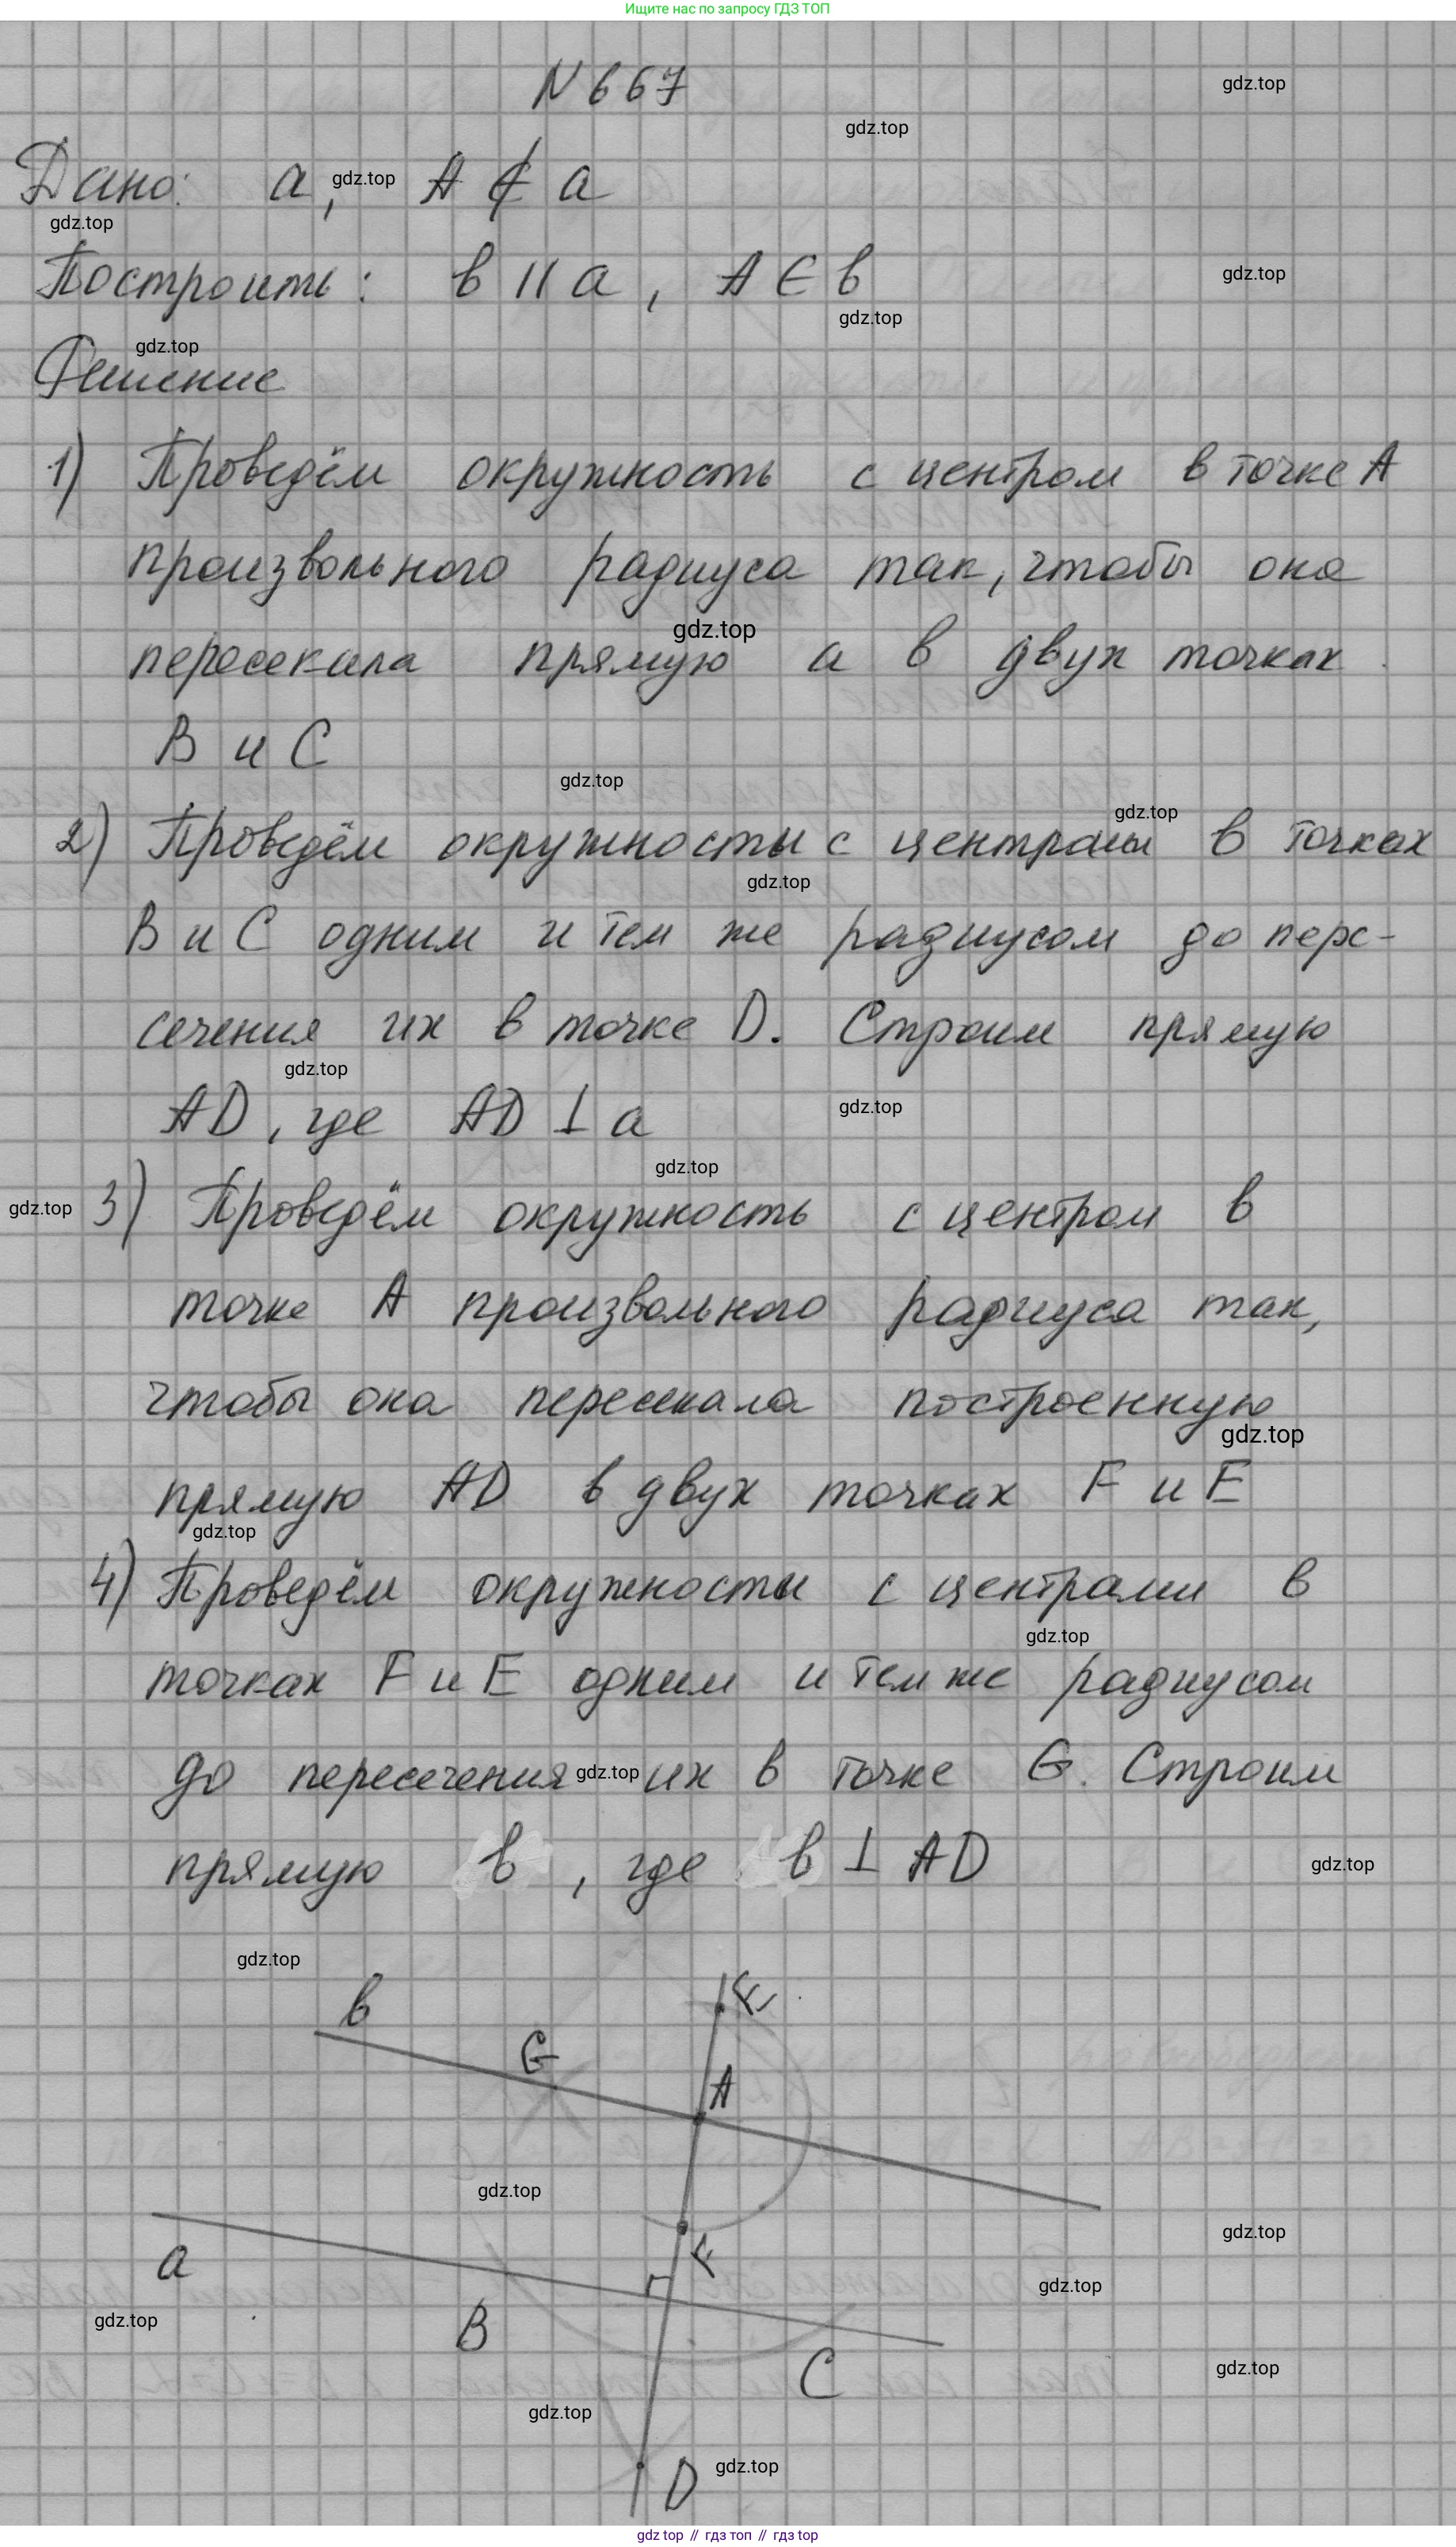 Ищите нас по запросу ГДЗ ТОП
N 667
gdz.top
gdz.top
Дано: a, A ∉ a
gdz.top
gdz.top
Построить: в || a, A ∈ в
gdz.top
gdz.top
gdz.top
Решение
1) Проведём окружность с центром в точке A
произвольного радиуса так, чтобы она
gdz.top
пересекала прямую a в двух точках
B и C
gdz.top
gdz.top
2) Проведём окружносты с центрами в точках
gdz.top
B и C одним и тем же радиусом до пере-
сечения их в точке D. Строим прямую
gdz.top
AD, где AD ⊥ a
gdz.top
gdz.top
gdz.top
3) Проведём окружность с центром в
точке A произвольного радиуса так,
чтобы она пересекала построенную
gdz.top
прямую AD в двух точках F и E
gdz.top
4) Проведём окружносты с центрами в
gdz.top
точках F и E одним и тем же радиусом
до пересечения их в точке G. Строим
gdz.top
прямую в, где в ⊥ AD
gdz.top
gdz.top
в
E
G
A
gdz.top
gdz.top
a
F
gdz.top
gdz.top
B
C
gdz.top
gdz.top
D
gdz.top
gdz top // гдз топ // gdz top